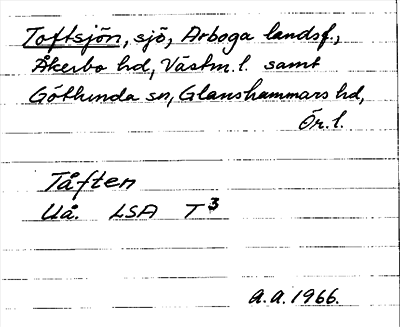 Toftsjön, sjö, Arboga landsf.,
Åkerbo hd, Västm. l. samt
Götlunda sn, Glanshammars hd,
Ör. l.
Tåften
Uå. LSA T3
A.A. 1966.